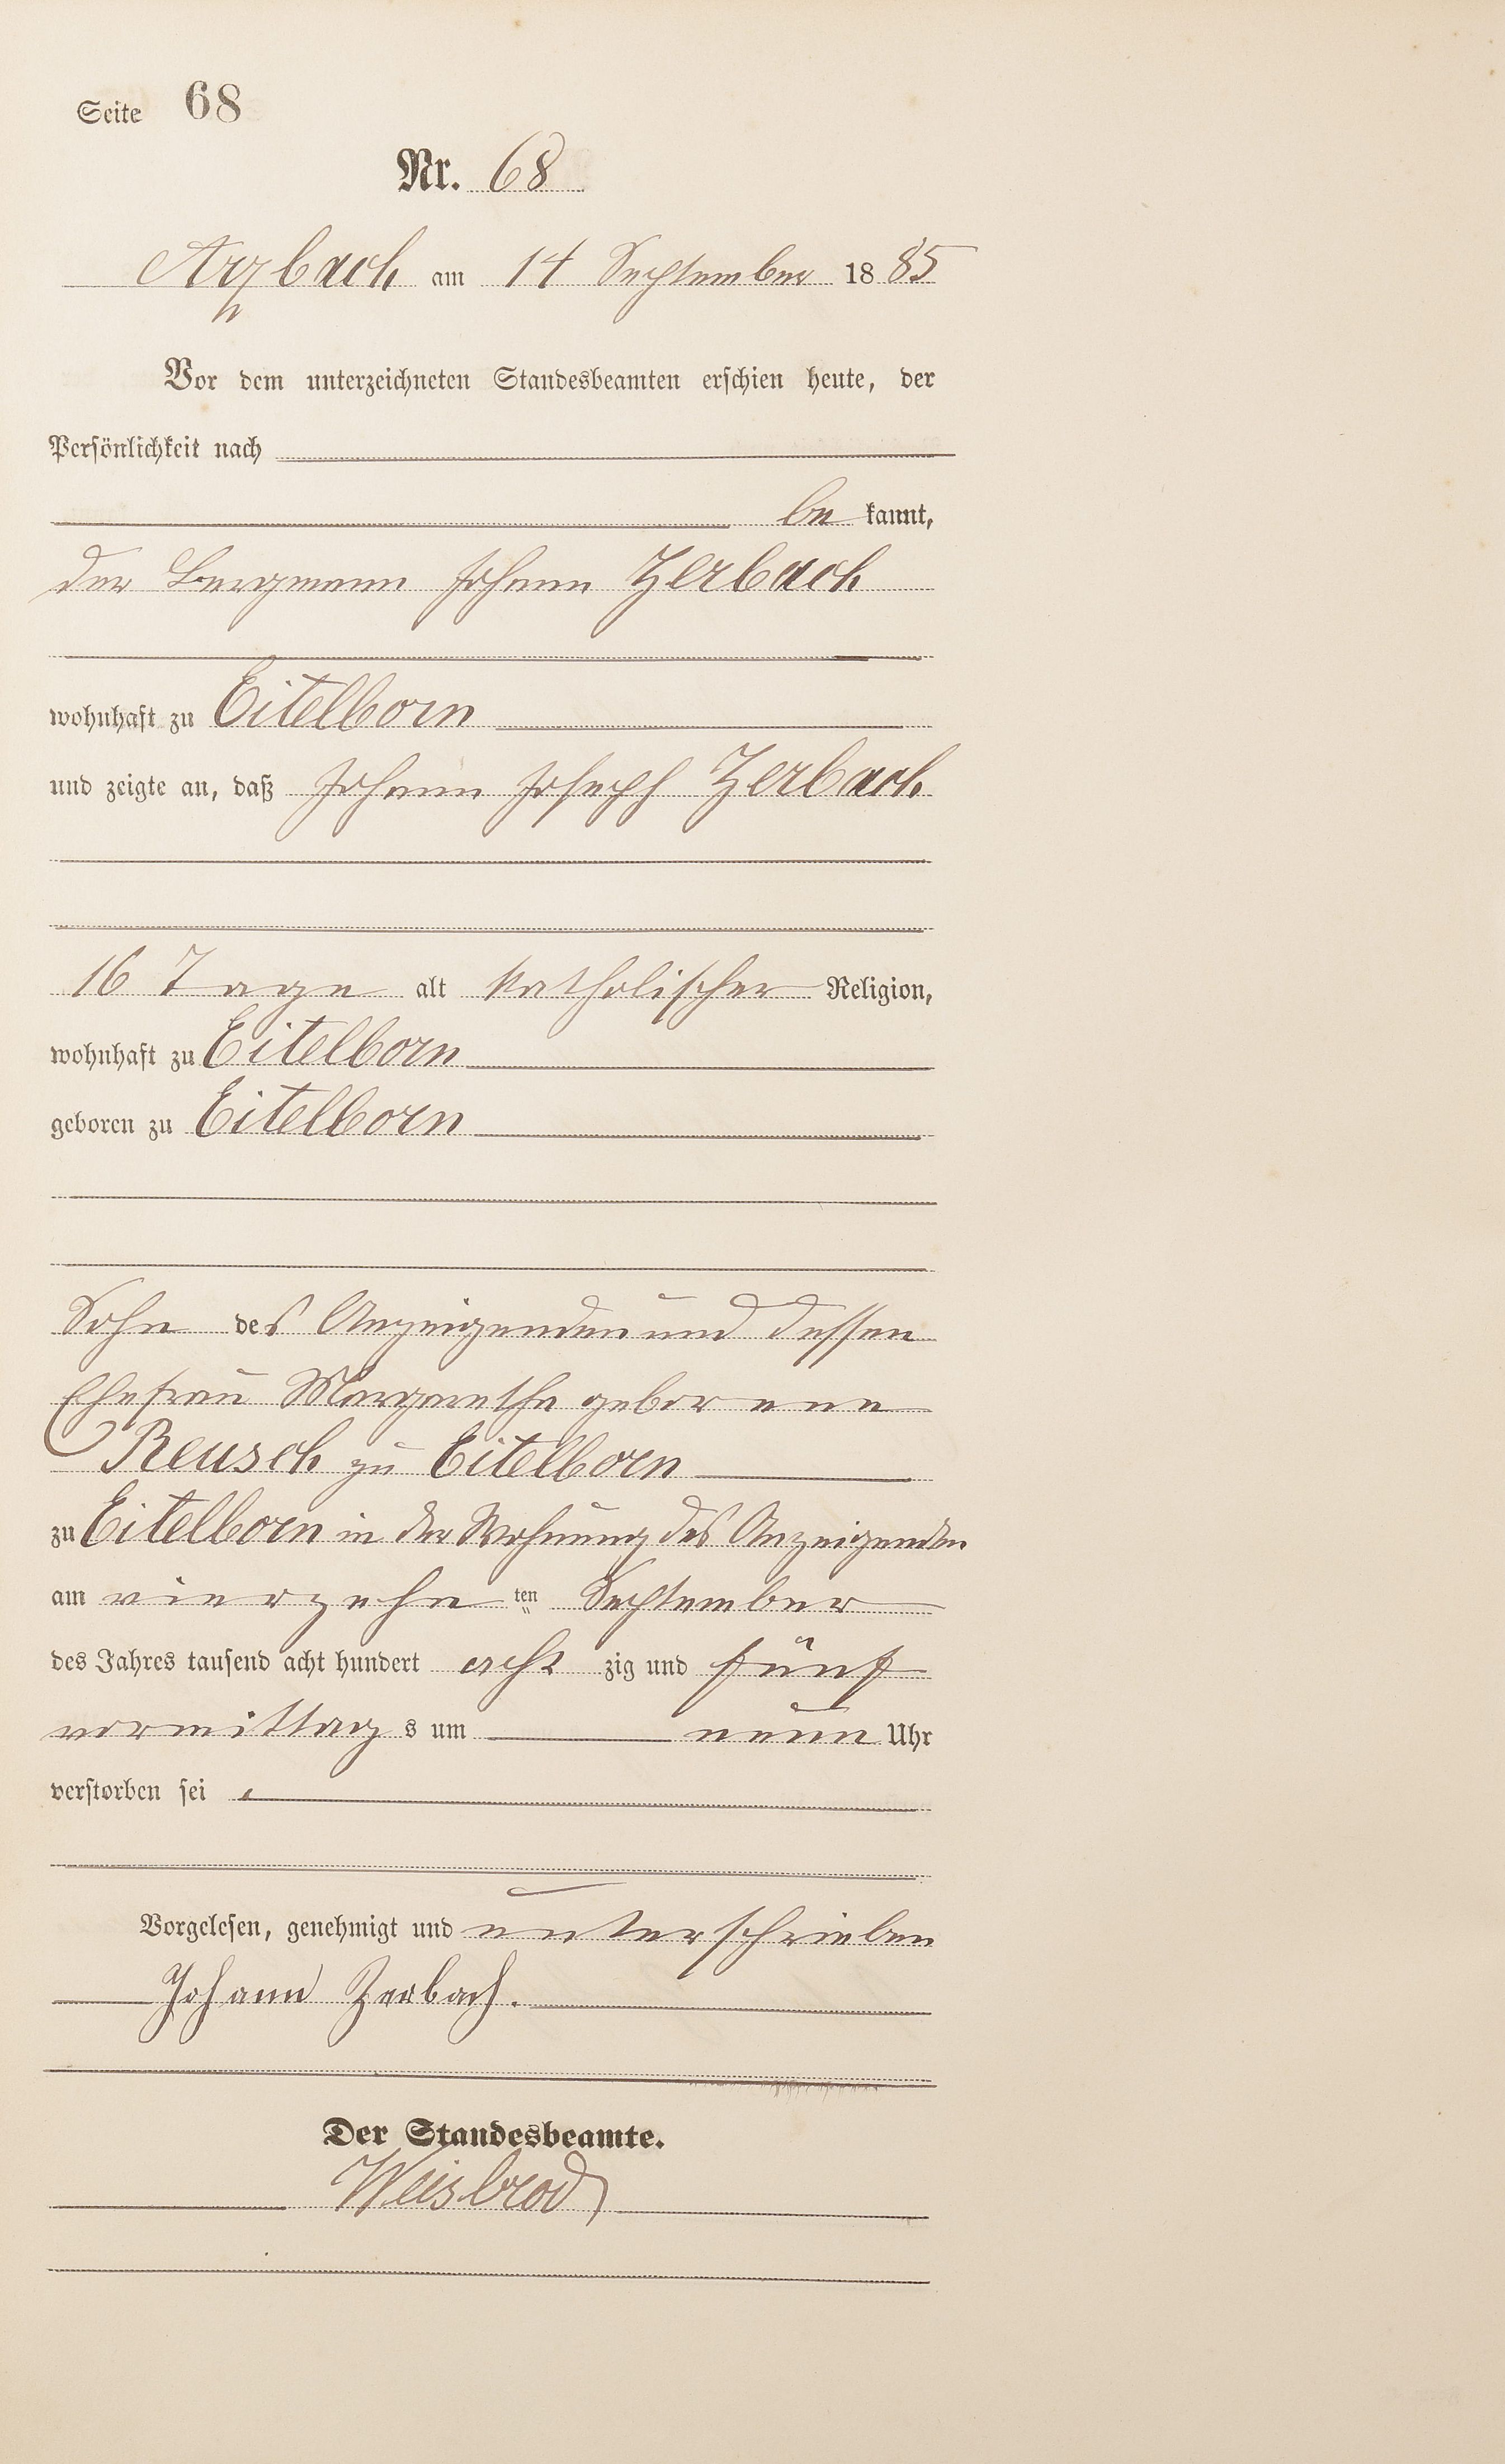 Seite 68
Nr. 68
Arzbach am 14 September 1885
Vor dem unterzeichneten Standesbeamten erschien heute, der
Persönlichkeit nach
be kannt,
der Bergmann Johann Zerbach
wohnhaft zu Eitelborn
und zeigte an, daß Johann Joseph Zerbach
16 Tage alt katholischer Religion,
wohnhaft zu Eitelborn
geboren zu Eitelborn
Sohn des Anzeigenden und dessen
Ehefrau Margarethe geborene
Reusch zu Eitelborn
zu Eitelborn in der Wohnung des Anzeigenden
am vierzehn ten September
des Jahres tausend acht hundert acht zig und fünf
vormittag s um neun Uhr
verstorben sei
Vorgelesen, genehmigt und unterschrieben
Johann Zerbach.
Der Standesbeamte.
Weisbrod